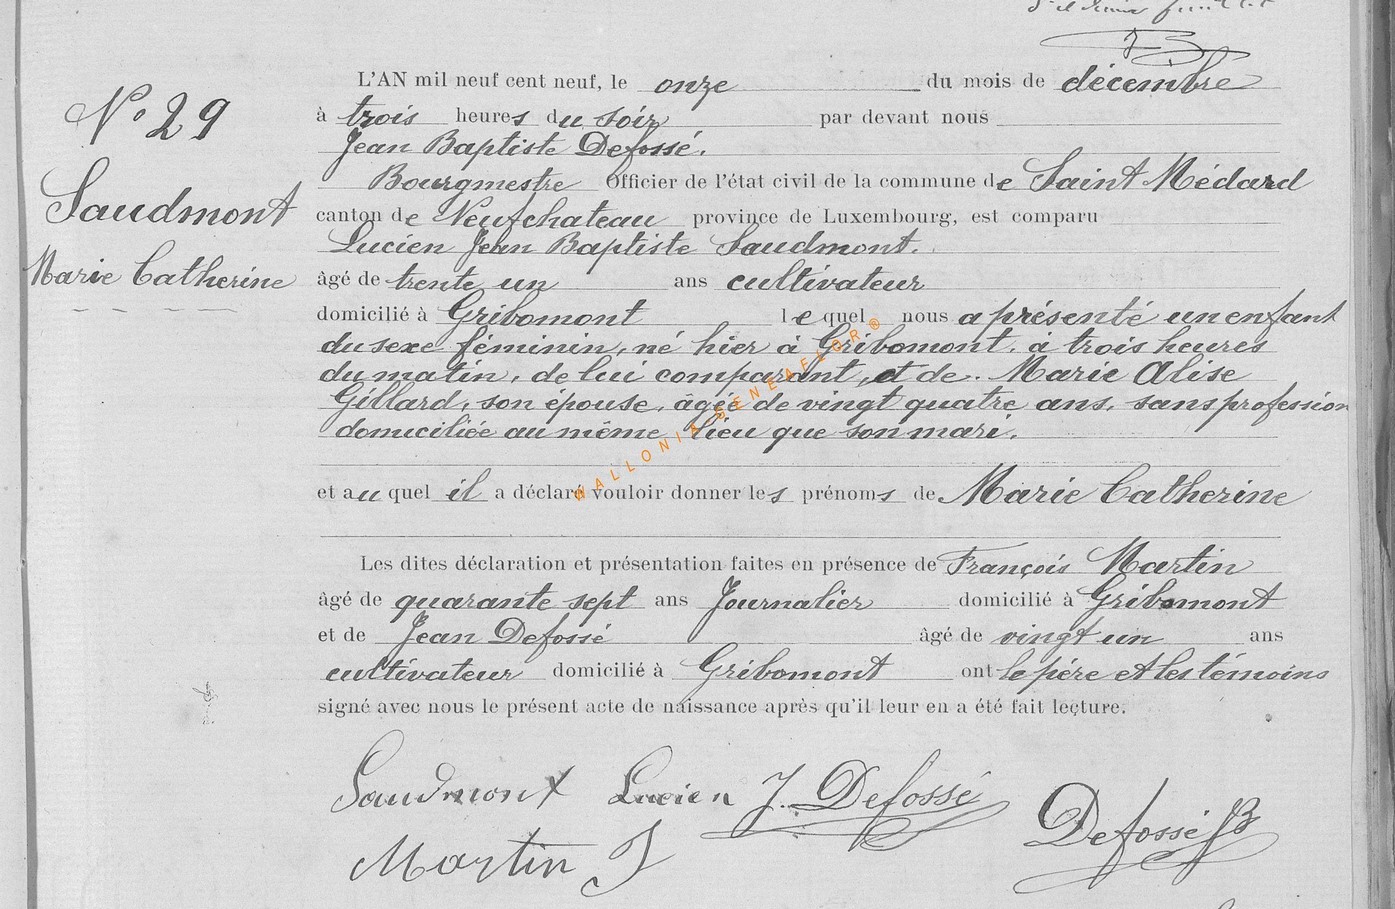 N° 29
Saudmont
Marie Catherine
L'AN mil neuf cent neuf, le onze du mois de décembre
à trois heures du soir par devant nous
Jean Baptiste Defossé.
Bourgmestre Officier de l'état civil de la commune de Saint Médard
canton de Neufchateau province de Luxembourg, est comparu
Lucien Jean Baptiste Saudmont.
âgé de trente un ans cultivateur
domicilié à Gribomont lequel nous a présenté un enfant
du sexe féminin, né hier à Gribomont, à trois heures
du matin, de lui comparant, et de Marie Alise
Gillard, son épouse, âgée de vingt quatre ans, sans profession
domiciliée au même lieu que son mari.
et auquel il a déclaré vouloir donner les prénoms de Marie Catherine
Les dites déclaration et présentation faites en présence de François Martin
âgé de quarante sept ans Journalier domicilié à Gribomont
et de Jean Defossé âgé de vingt un ans
cultivateur domicilié à Gribomont ont le père et les témoins
signé avec nous le présent acte de naissance après qu'il leur en a été fait lecture.
Saudmont Lucien J. Defossé
Martin J Defossé JB
WALLONIA GENEAFLOR®